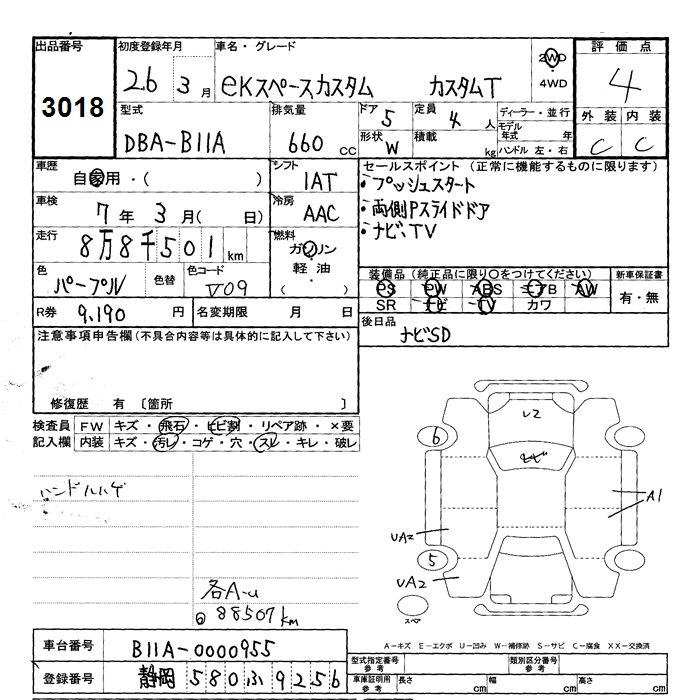 出品番号
3018
初度登録年月
26 3月
車名・グレード
eKスペースカスタム カスタムT
2WD
4WD
評価点
4
外装 内装
C C
型式
DBA-B11A
排気量
660 cc
ドア 5
定員 4人
形状 W
積載 kg
ディーラー・並行
モデル年式 年
ハンドル 左・右
車歴
自家用・( )
シフト
IAT
車検
7年3月( 日)
冷房
AAC
走行
8万8千501km
燃料
ガソリン
軽油
( )
色
パープル
色替
色コード
V09
R券 9,190円
名変期限 月 日
セールスポイント (正常に機能するものに限ります)
・プッシュスタート
・両側Pスライドドア
・ナビ、TV
装備品(純正品に限り○をつけてください)
PS PW ABS エアB AW
SR ナビ TV カワ
新車保証書
有・無
後日品
ナビSD
注意事項申告欄(不具合内容等は具体的に記入して下さい)
修復歴 有 〔箇所 〕
検査員記入欄
FW キズ・飛石・ヒビ割・リペア跡・×要
内装 キズ・汚レ・コゲ・穴・スレ・キレ・破レ
ハンドルハゲ
各A-u
88507km
U2
ヒビ
6
A1
UA2
5
UA2
スペア
A-キズ E-エクボ U-凹み W-補修跡 S-サビ C-腐食 XX-交換済
車台番号
B11A-0000955
登録番号
静岡 580 ふ 9256
型式指定番号 参考
類別区分番号 参考
車庫証明用 参考
長さ cm
幅 cm
高さ cm